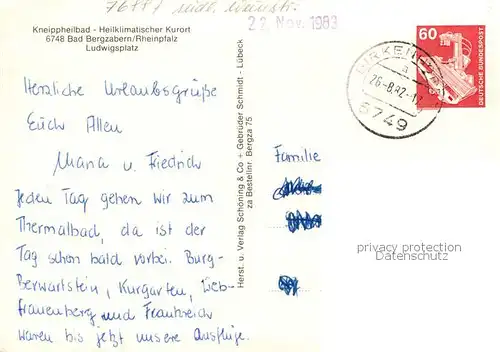 76887 südl. Weinstr.
22. Nov. 1983
Kneippheilbad - Heilklimatischer Kurort
6748 Bad Bergzabern/Rheinpfalz
Ludwigsplatz
Herzliche Urlaubsgrüße
Euch Allen
Maria u. Friedrich
Jeden Tag gehen wir zum
Thermalbad, da ist der
Tag schon bald vorbei. Burg-
Berwartstein, Kurgarten, Lieb-
frauenberg und Frankreich
waren bis jetzt unsere Ausflüge.
Herst. u. Verlag Schöning & Co + Gebrüder Schmidt - Lübeck
za Bestellnr Bergza 75
26.-8.82-12
6749
60
DEUTSCHE BUNDESPOST
Familie
privacy protection
Datenschutz